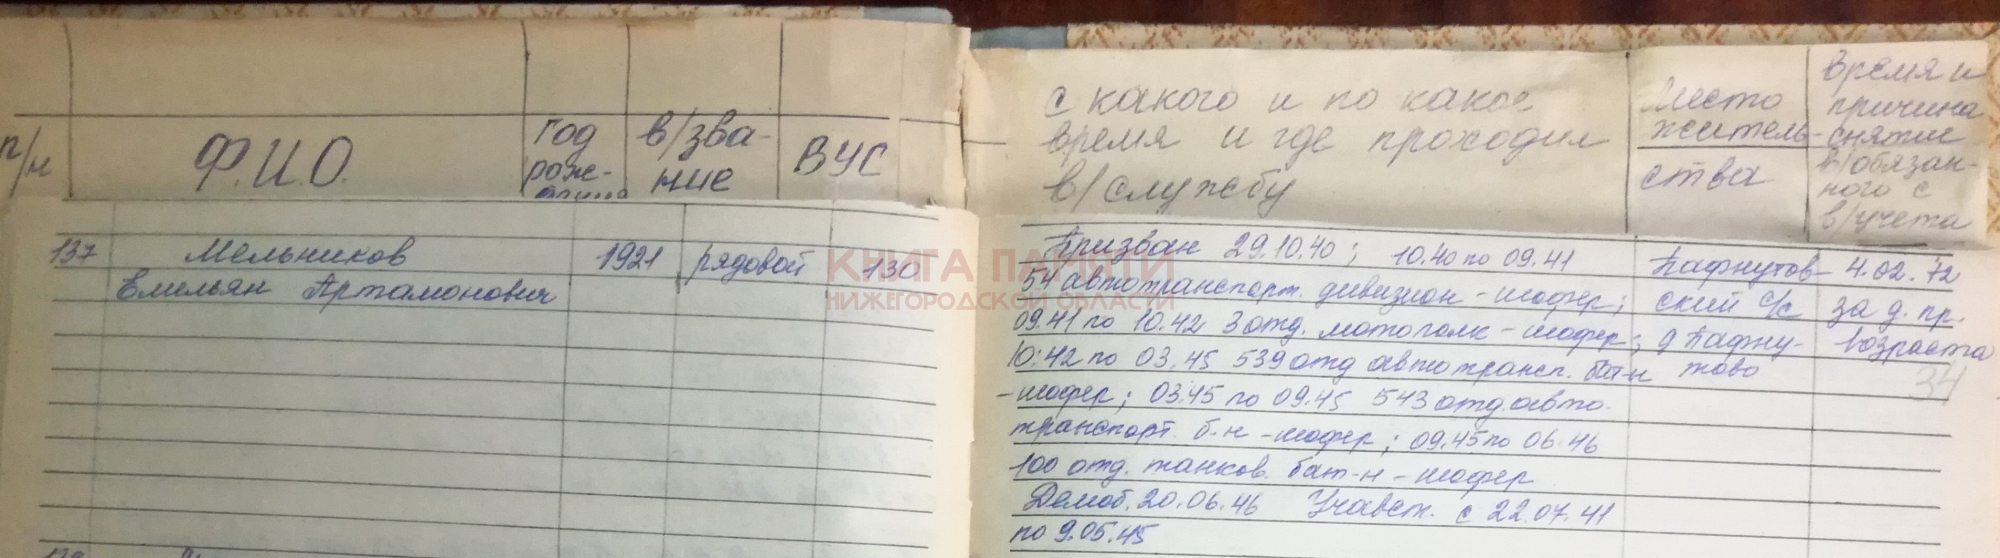 п/н
Ф.И.О.
Год
рож-
дения
в/зва-
ние
ВУС
с какого и по какое
время и где проходил
в/службу
Место
житель-
ства
Время и
причина
снятие
в/обязан-
ного с
в/учета
137
Мельников
Емельян Артамонович
1921
рядовой
130
Призван 29.10.40; 10.40 по 09.41
54 автотранспорт. дивизион - шофер;
09.41 по 10.42 3 отд. мотополк - шофер;
10.42 по 03.45 539 отд автотрансп. бат-н
- шофер; 03.45 по 09.45 543 отд. авто-
транспорт. б-н - шофер; 09.45 по 06.46
100 отд. танков. бат-н - шофер
Демоб. 20.06.46 Участ. с 22.07.41
по 9.05.45
Пафнутов-
ский с/с
д Пафну-
тово
4.02.72
за д. пр.
возраста
34
КНИГА ПАМЯТИ
НИЖЕГОРОДСКОЙ ОБЛАСТИ